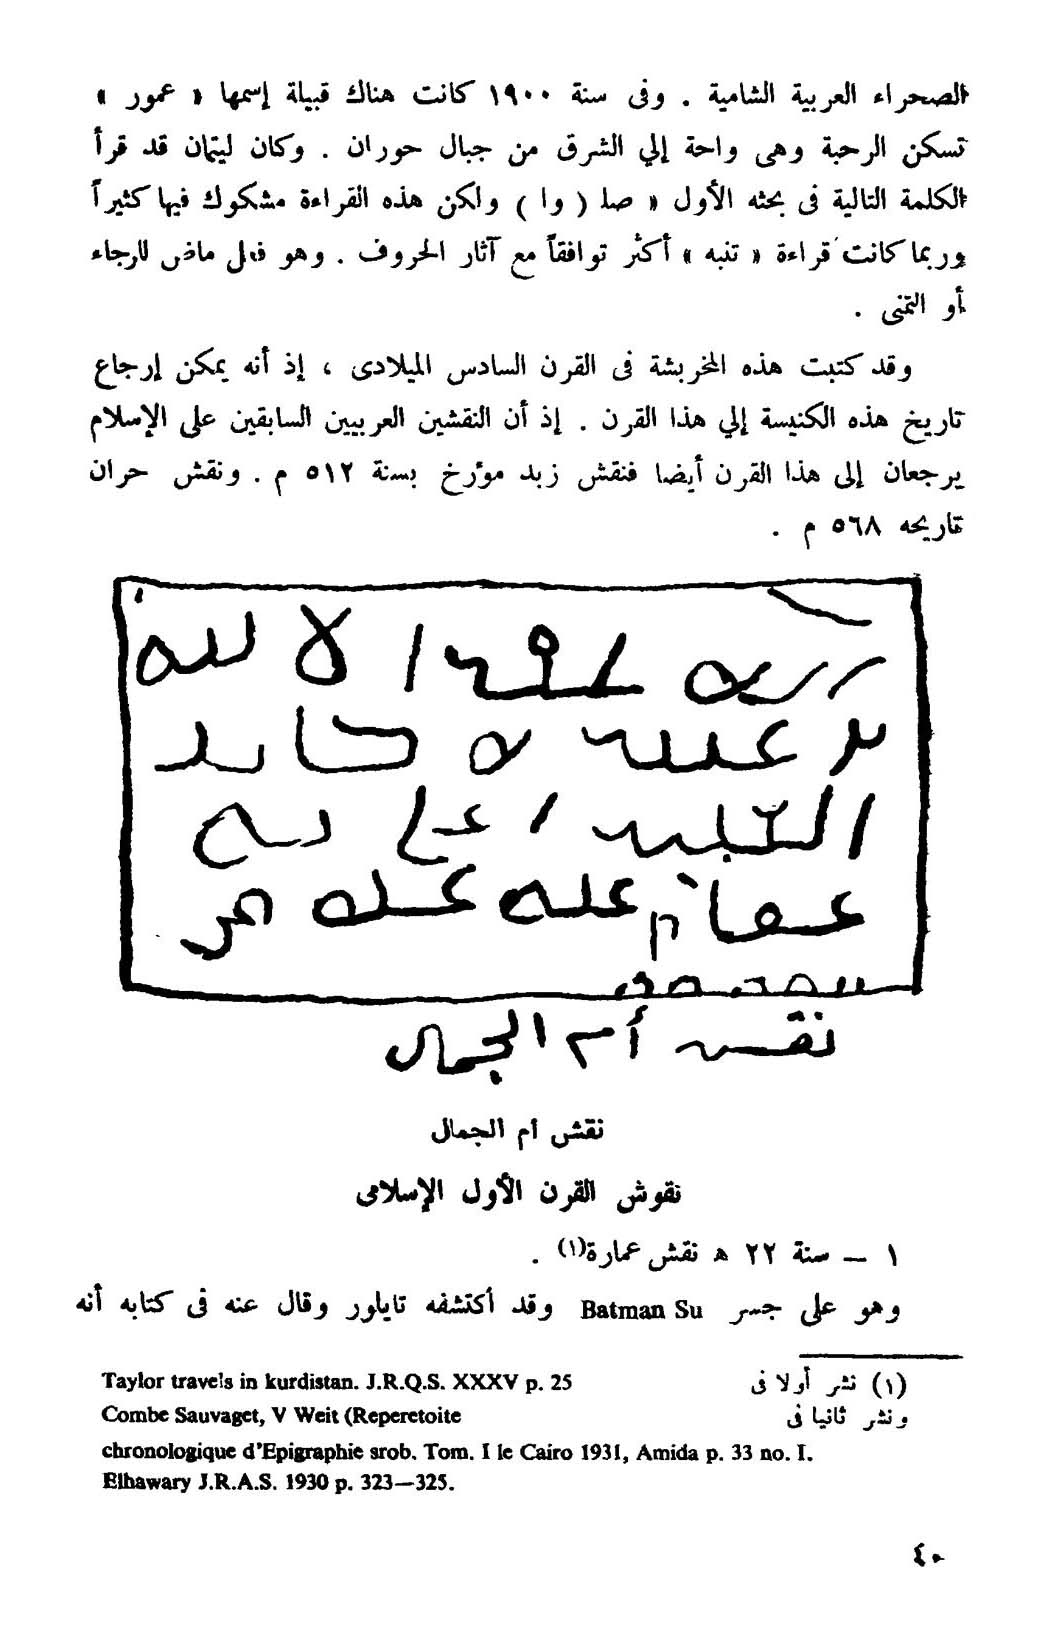 الصحراء العربية الشامية . وفى سنة ١٩٠٠ كانت هناك قبيلة إسمها « عمور »
تسكن الرحبة وهى واحة إلي الشرق من جبال حوران . وكان ليتمان قد قرأ
الكلمة التالية فى بحثه الأول « صلـ ( وا ) ولكن هذه القراءة مشكوك فيها كثيراً
وربما كانت قراءة « تنبه » أكثر توافقاً مع آثار الحروف . وهو فعل ماض للرجاء
أو التمنى .
وقد كتبت هذه المخربشة فى القرن السادس الميلادى ، إذ أنه يمكن إرجاع
تاريخ هذه الكنيسة إلي هذا القرن . إذ أن النقشين العربيين السابقين على الإسلام
يرجعان إلى هذا القرن أيضا فنقش زبد مؤرخ بسنة ٥١٢ م . ونقش حران
تاريحه ٥٦٨ م .
نقش أم الجمال
نقش أم الجمال
نقوش القرن الأول الإسلامى
١ – سنة ٢٢ ه نقش عمارة(١) .
وهو على جسر Batman Su وقد أكتشفه تايلور وقال عنه فى كتابه أنه
(١) نشر أولا فى Taylor travels in kurdistan. J.R.Q.S. XXXV p. 25
ونشر ثانيا فى Combe Sauvaget, V Weit (Reperetoite
chronologique d'Epigraphie srob. Tom. I le Cairo 1931, Amida p. 33 no. I.
Elhawary J.R.A.S. 1930 p. 323–325.
٤٠